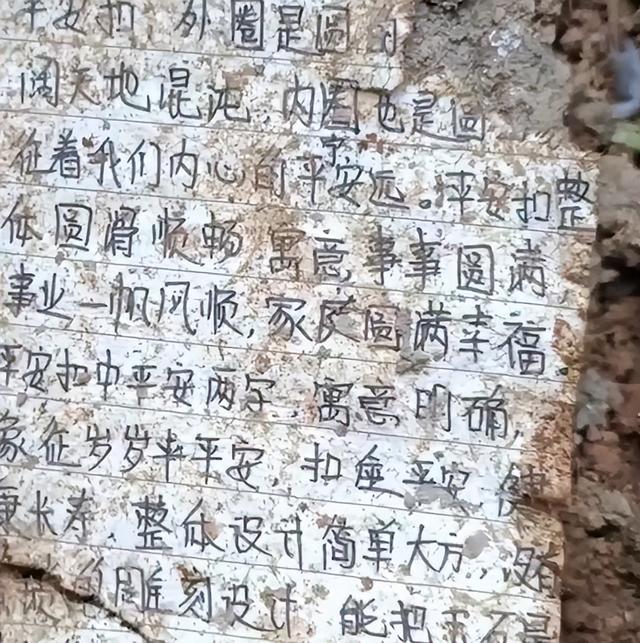 平安扣 外圈是圆
阔天地混沌,内圈也是圆
征着我们内心的平安宁远。平安扣整
体圆滑顺畅 寓意事事圆满
事业一帆风顺,家庭圆满幸福.
平安扣中平安两字,寓意明确,
象征岁岁平安 扣座平安 健
康长寿,整体设计简单大方,没有
雕刻设计 能把玉石